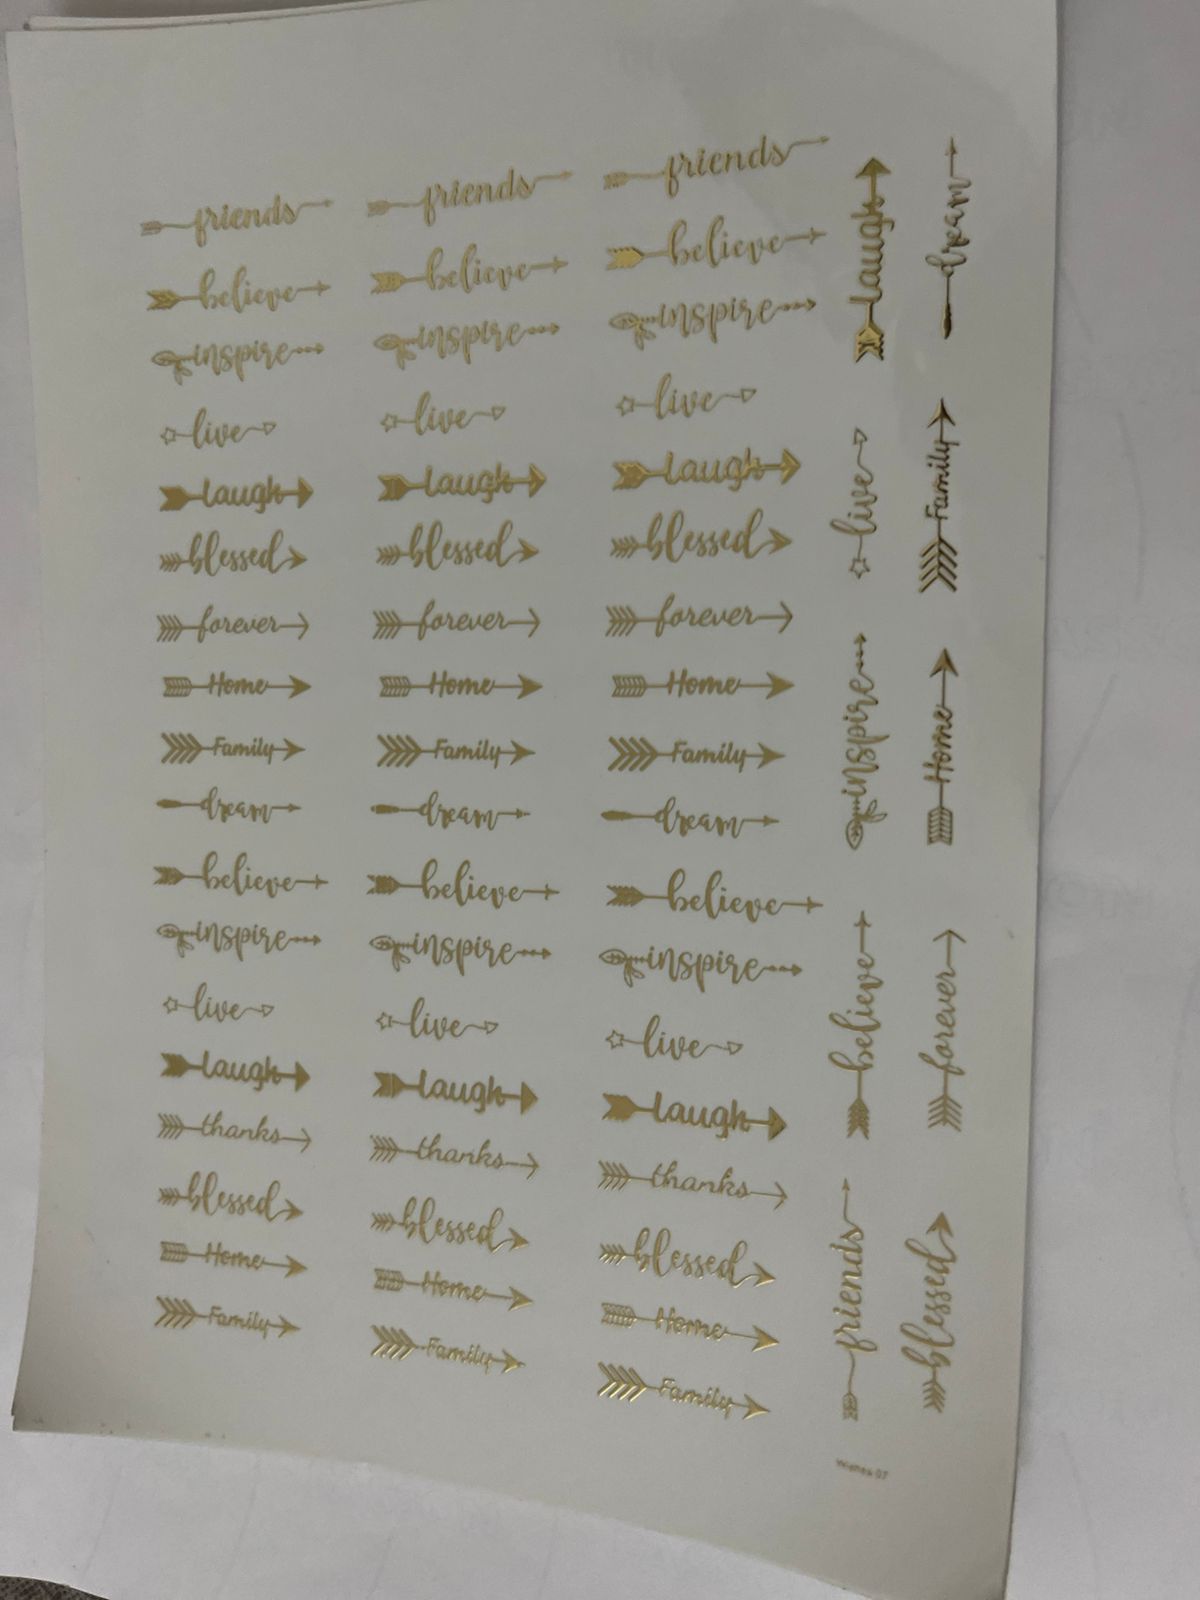 friends friends friends
believe believe believe
inspire inspire inspire
live live live
laugh laugh laugh
blessed blessed blessed
forever forever forever
Home Home Home
Family Family Family
dream dream dream
believe believe believe
inspire inspire inspire
live live live
laugh laugh laugh
thanks thanks thanks
blessed blessed blessed
Home Home Home
Family Family Family
laugh
live
inspire
believe
friends
dream
Family
Home
forever
blessed
Wishes 07